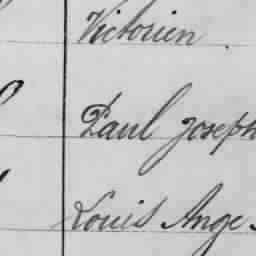 Victorien
Paul Joseph
Louis Ange